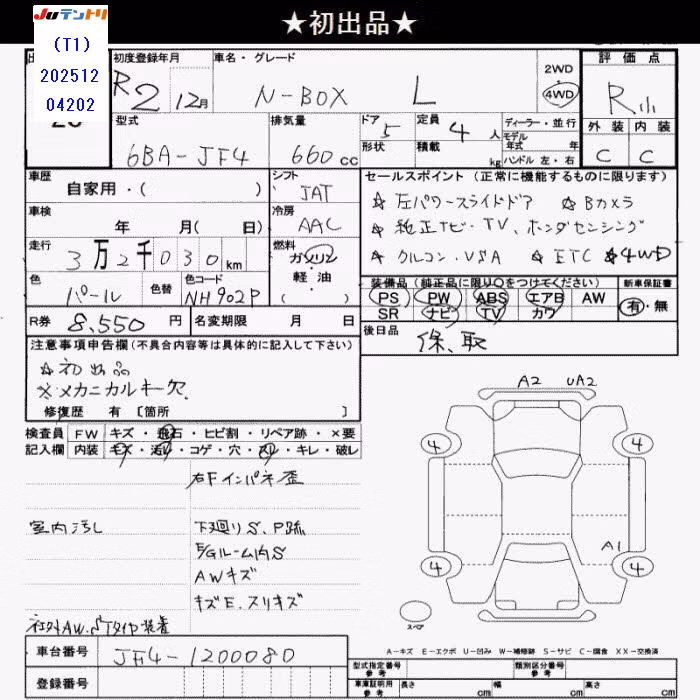 ★初出品★
JUテントリ
(T1)
202512
04202
初度登録年月 車名・グレード 評価点
R2 12月 N-BOX L 2WD・4WD R小
型式 排気量 ドア 定員 ディーラー・並行 外装 内装
6BA-JF4 660cc 5 4人 モデル年式 年 C C
形状 積載 kg ハンドル 左・右
車歴 シフト セールスポイント (正常に機能するものに限ります)
自家用・( ) IAT
☆左パワースライドドア ☆Bカメラ
車検 冷房
年 月( 日) AAC
☆純正ナビ・TV、ホンダセンシング
走行 燃料
3万2千030km ガソリン・軽油・( )
☆クルコン・VSA ☆ETC ☆4WD
色 色替 色コード
パール NH902P
装備品 (純正品に限り○をつけてください) 新車保証書
PS PW ABS エアB AW 有・無
SR ナビ TV カワ
R券 8,550円 名変期限 月 日
後日品 保、取
注意事項申告欄(不具合内容等は具体的に記入して下さい)
☆初出品
※メカニカルキー欠
修復歴 有 [箇所 ]
検査員 FW キズ・飛石・ヒビ割・リペア跡・×要
記入欄 内装 キズ・汚れ・コゲ・穴・スレ・キレ・破レ
右Fインパネ歪
室内汚し
下廻りS、P跡
E/Gルーム内S
AWキズ
キズE、スリキズ
社外AW、STタイヤ装着
A2 UA2
4 4
A1
4 4
スペア
A-キズ E-エクボ U-凹み W-補修跡 S-サビ C-腐食 XX-交換済
車台番号 JF4-1200080
登録番号
型式指定番号 参考 類別区分番号 参考
車庫証明用 参考 長さ cm 幅 cm 高さ cm